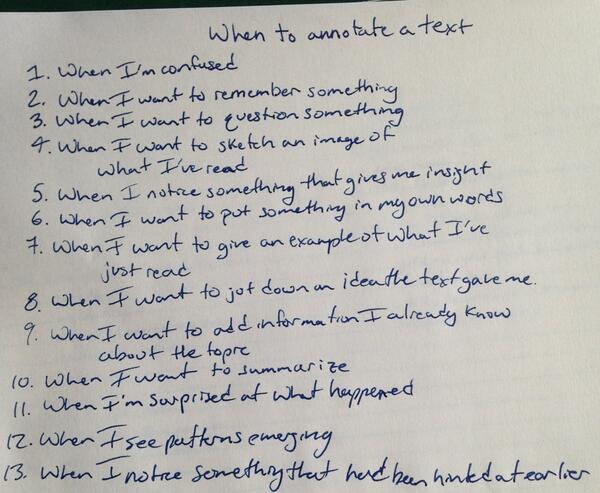 When to annotate a text
1. When I'm confused
2. When I want to remember something
3. When I want to question something
4. When I want to sketch an image of
what I've read
5. When I notice something that gives me insight
6. When I want to put something in my own words
7. When I want to give an example of what I've
just read
8. When I want to jot down an idea the text gave me.
9. When I want to add information I already know
about the topic
10. When I want to summarize
11. When I'm surprised at what happened
12. When I see patterns emerging
13. When I notice something that had been hinted at earlier